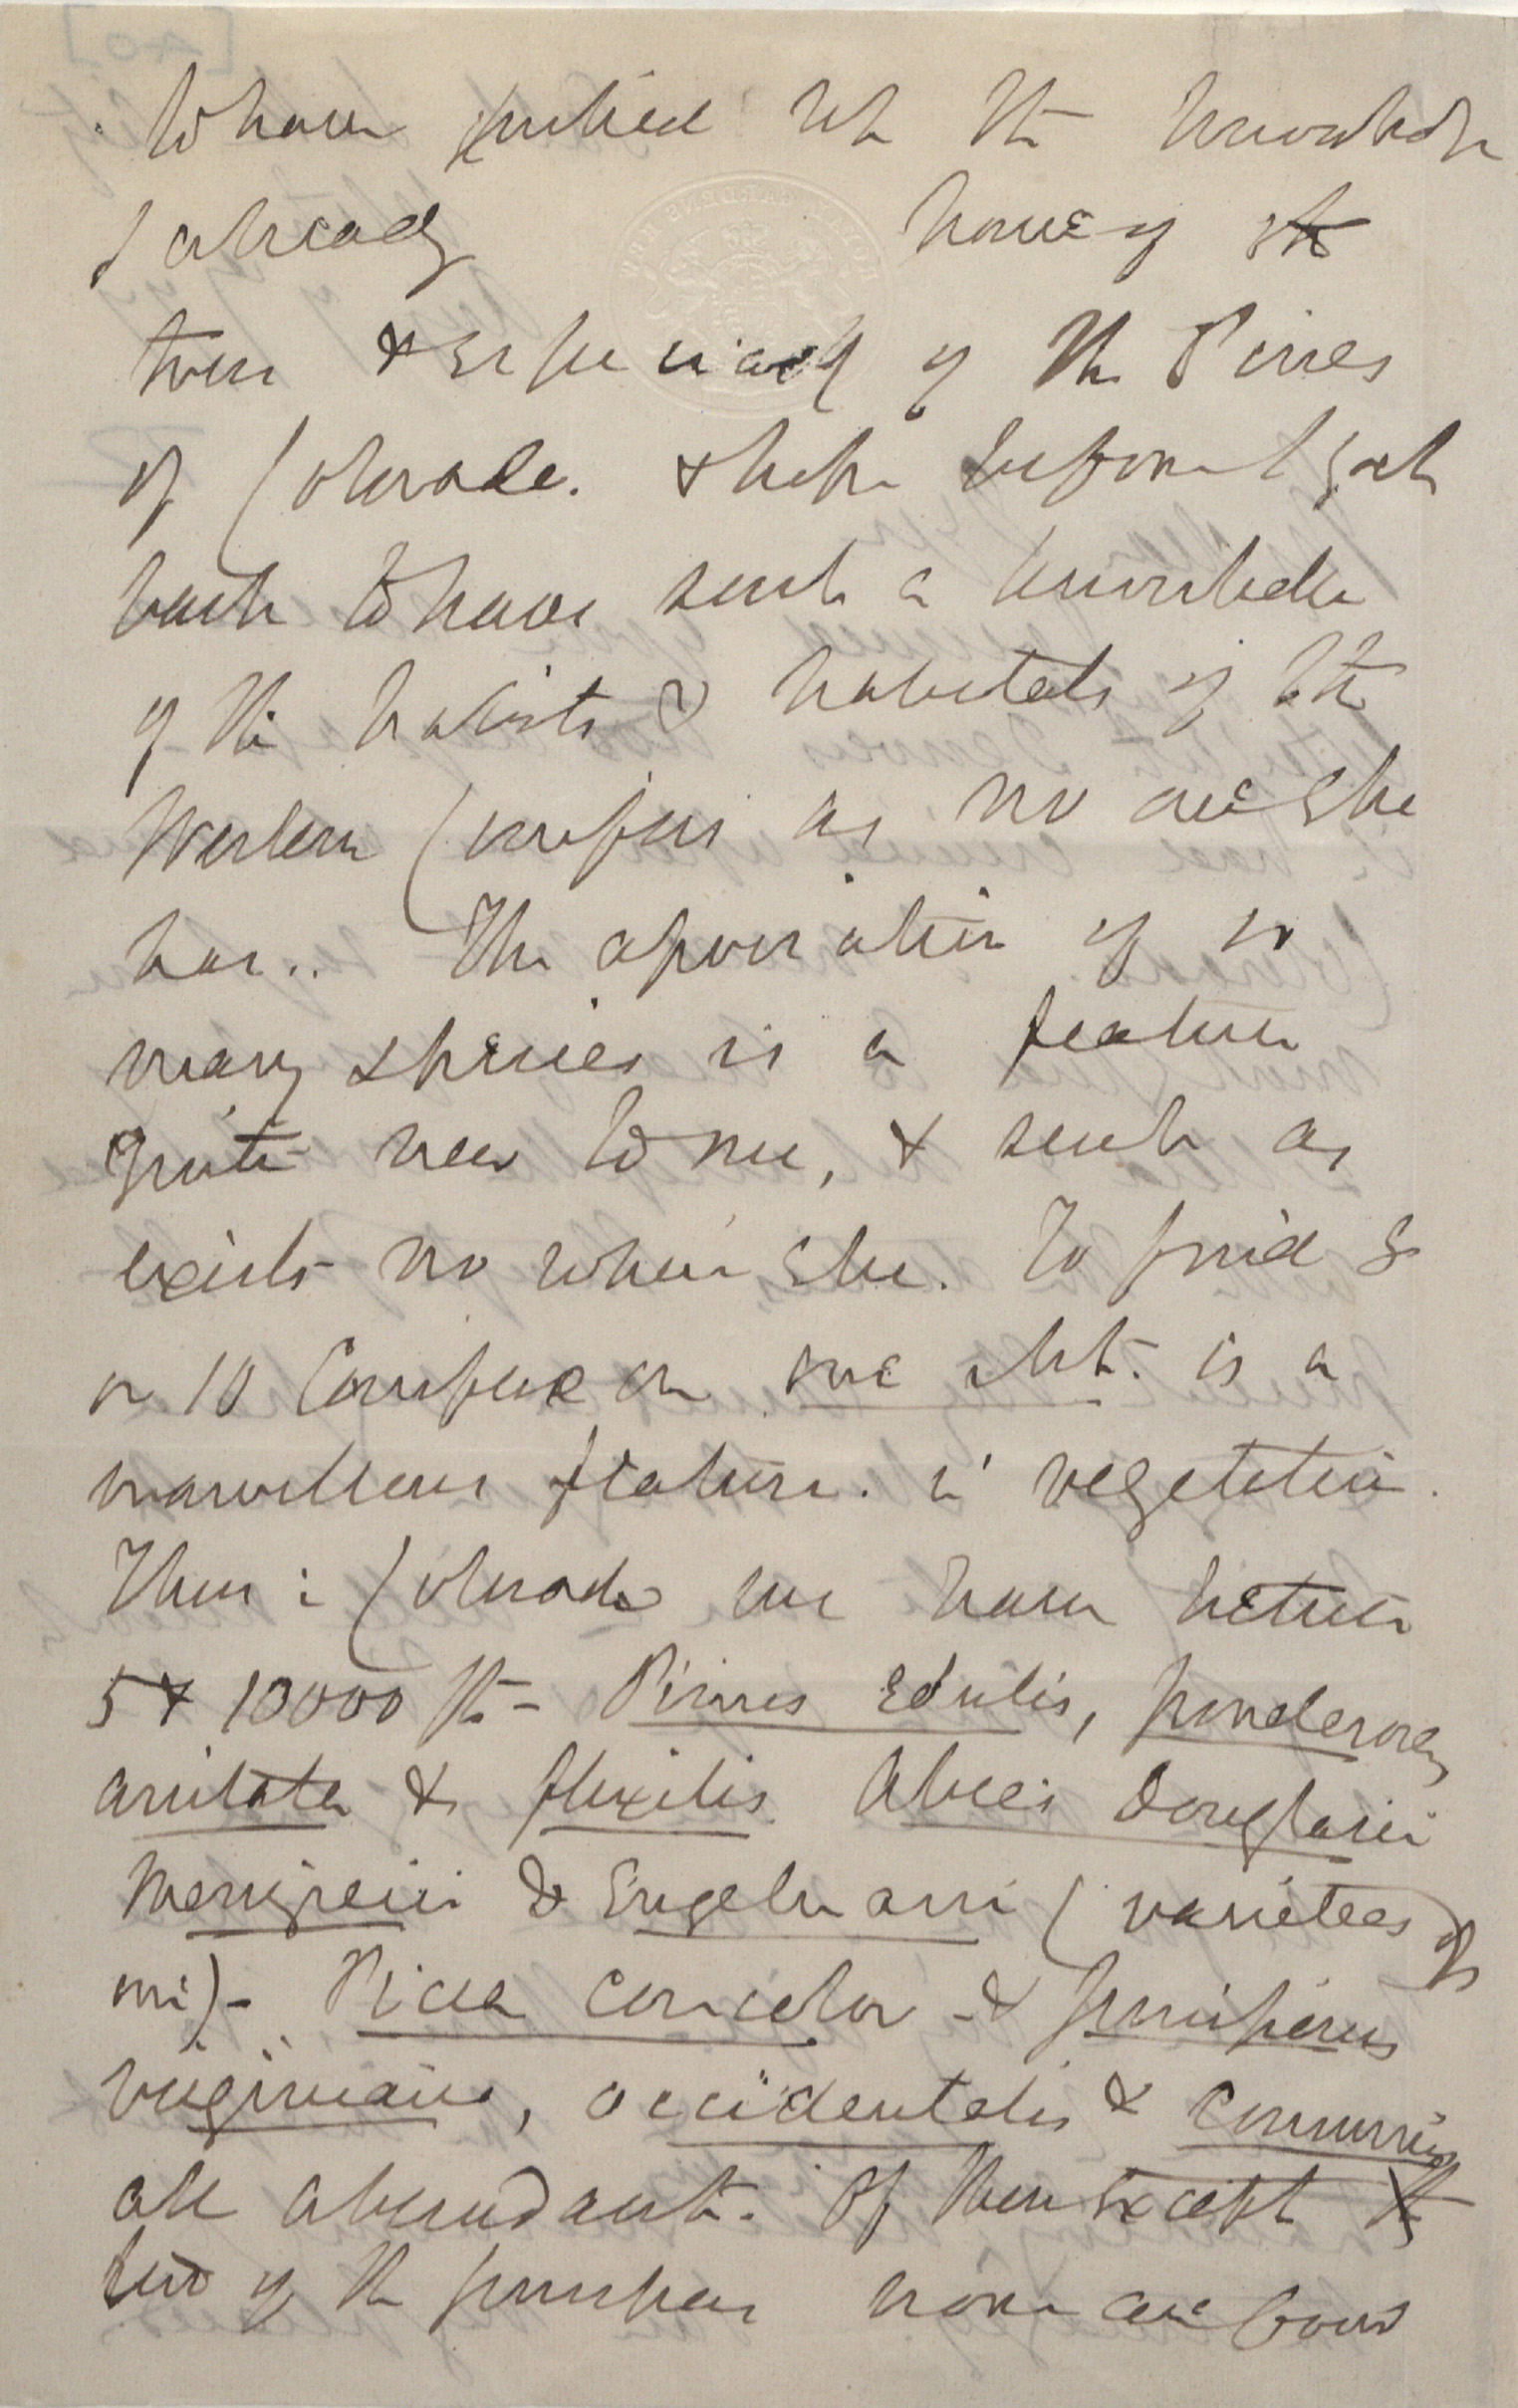 to have puhed with the knowledge
I already have of the
trees & especially of the Pines
of Colorado. & hope before I get
back to have such a knowledge
of the habits & habitats of the
Western Conifers as no one else
has.. The association of so
many species is a feature
quite new to me, & such as
exists no where else. To find 8
or 10 Coniferae on one mt. is a
marvellous feature. in vegetation.
Thus in Colorado we have between
5 & 10000 ft - Pinus edulis, ponderosa,
aristata & flexilis. Abies Douglasii
Menziesii & Engelmanni (varieties of
one) - Picea concolor - & Juniperus
virginiana, occidentalis & communis
all abundant. Of these except the
two of the junipers none are found